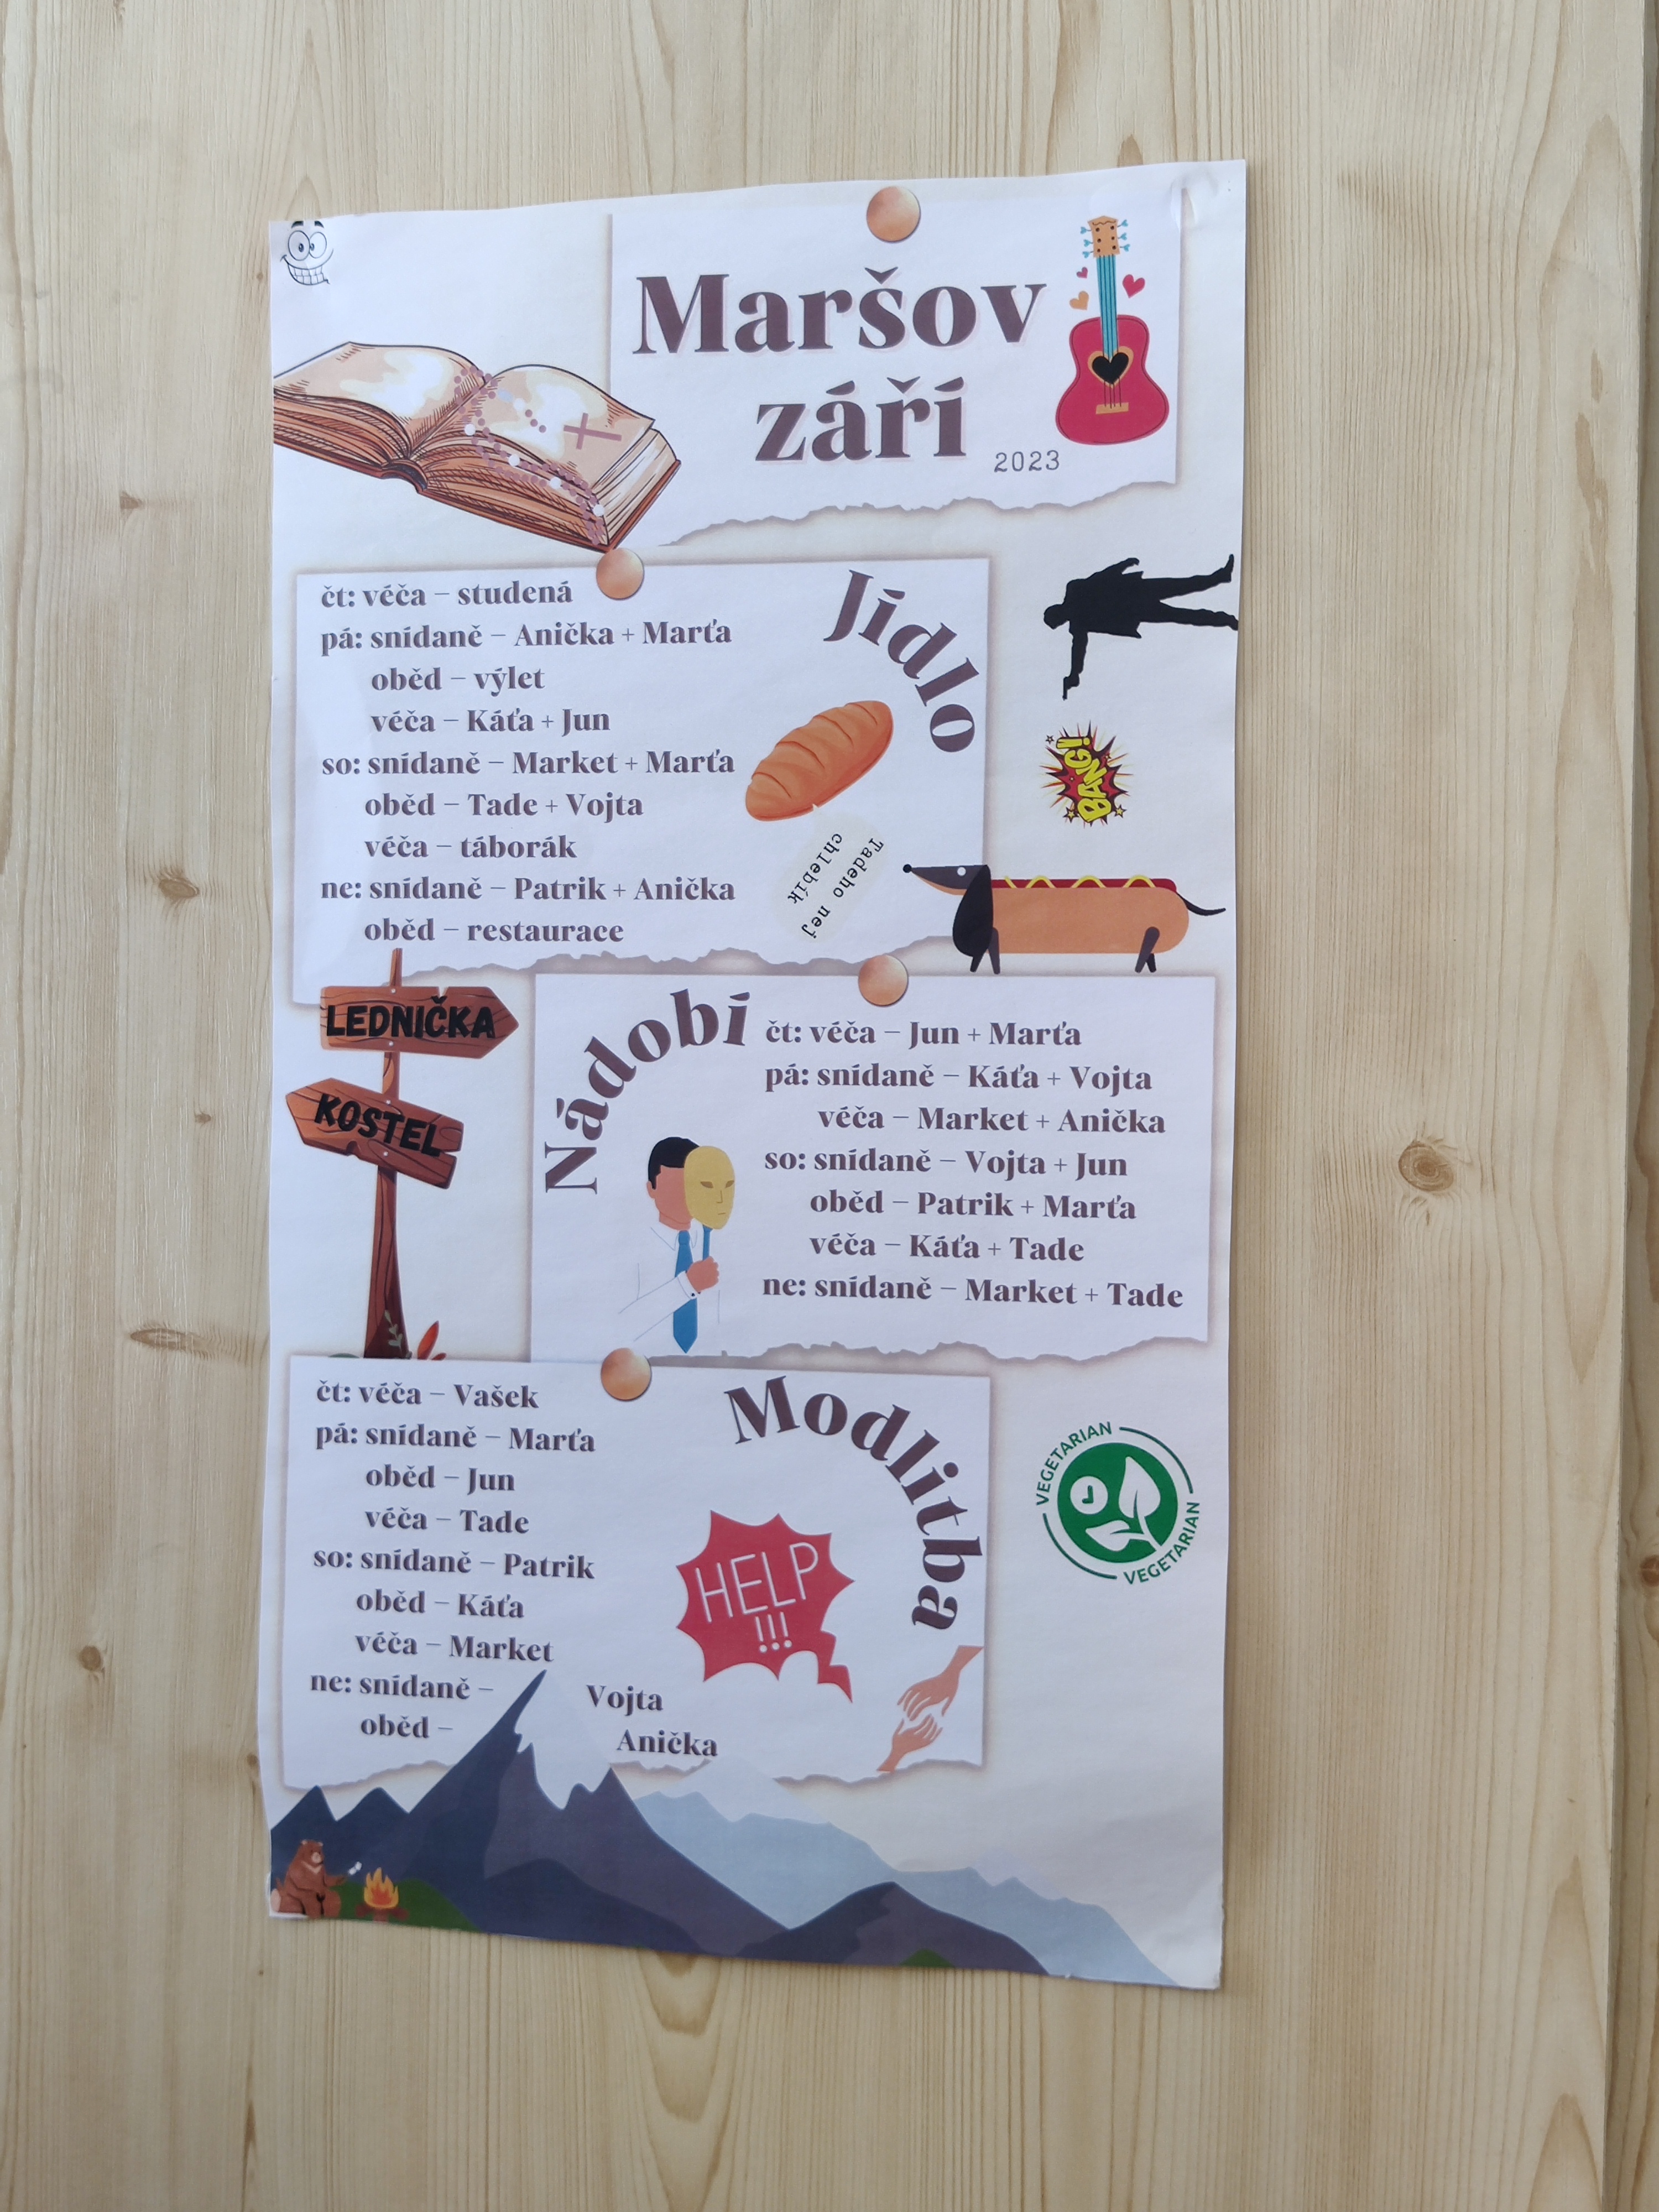 Maršov
září
2023
Jídlo
čt: véča – studená
pá: snídaně – Anička + Marťa
oběd – výlet
véča – Káťa + Jun
so: snídaně – Market + Marťa
oběd – Tade + Vojta
véča – táborák
ne: snídaně – Patrik + Anička
oběd – restaurace
Tadeho nej
chlebík
BANG!
LEDNIČKA
KOSTEL
Nádobí
čt: véča – Jun + Marťa
pá: snídaně – Káťa + Vojta
véča – Market + Anička
so: snídaně – Vojta + Jun
oběd – Patrik + Marťa
véča – Káťa + Tade
ne: snídaně – Market + Tade
Modlitba
čt: véča – Vašek
pá: snídaně – Marťa
oběd – Jun
véča – Tade
so: snídaně – Patrik
oběd – Káťa
véča – Market
ne: snídaně – Vojta
oběd – Anička
HELP
!!!
VEGETARIAN
VEGETARIAN